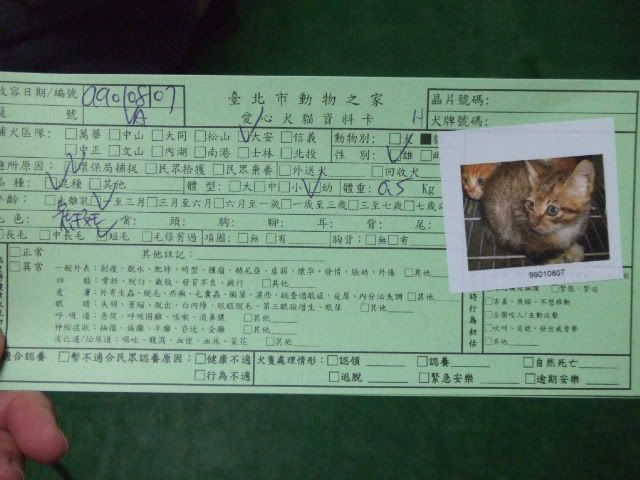 收容日期/編號 990108107
臺北市動物之家
晶片號碼:
籠 號 VA
愛心犬貓資料卡 H
犬牌號碼:
捕犬區隊: □萬華 □中山 □大同 □松山 ☑大安 □信義 動物別: □犬 ■
□中正 □文山 □內湖 □南港 □士林 □北投 性 別: ☑雄
原因: ☑環保局捕捉 □民眾拾獲 □民眾棄養 □外送犬 □回收犬
品種: ☑混種 □其他 體 型: □大 □中 □小 ☑幼 體重: 0.5 Kg
年齡: □未離乳 ☑至三月 □三月至六月 □六月至一歲 □一歲至三歲 □三至七歲
毛色: 嘴: 頭: 胸: 腳: 耳: 背: 尾:
□長毛 □中長毛 ☑短毛 □毛修剪過 項圈: □無 □有 胸背: □無 □有
□正常 其他註記:
□異常 一般外表: 削瘦、脫水、肥胖、畸型、腫瘤、精尼亞、虛弱、懷孕、發情、脹奶、外傷 □其他
四 肢: 骨折、脫臼、截肢、發育不良、跛行 □其他
皮 膚: 外寄生蟲、脫毛、疥癬、毛囊蟲、黴菌、濕疹、跳蚤過敏症、皮屑、內分泌失調 □其他
眼 睛: 失明、萎縮、脫出、白內障、眼瞼脫毛、第三眼瞼增生、眼屎 □其他
呼 吸 道: 急促、呼吸困難、咳嗽、流鼻膿 □其他
神經症狀: 抽搐、偏癱、半癱、昏迷、全癱 □其他
消化道/泌尿道: 嘔吐、腹瀉、血便、血尿、菜花 □其他
99010807
時行為初估
□緊張、緊迫
□害羞、畏縮、不想移動
□企圖咬人/主動攻擊
□吠叫、哭號、發出威脅聲
□其他
適合認養 □暫不適合民眾認養原因: □健康不適 犬隻處理情形: □認領 □認養 □自然死亡
□行為不適 □逃脫 □緊急安樂 □逾期安樂